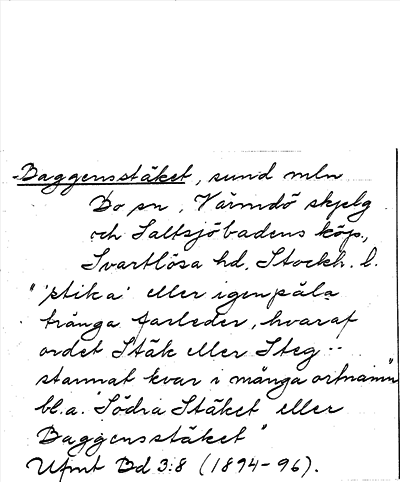 -Baggensstäket, sund mln
Bo sn, Värmdö skjelg
och Saltsjöbadens köp.,
Svartlösa hd, Stockh. l.
"'stika' eller igenpåla
trånga farleder, hvaraf
ordet Stäk eller Steg --
stannat kvar i många ortnamn
bl.a. Södra Stäket eller
Baggensstäket"
Ufmt Bd 3:8 (1894-96).